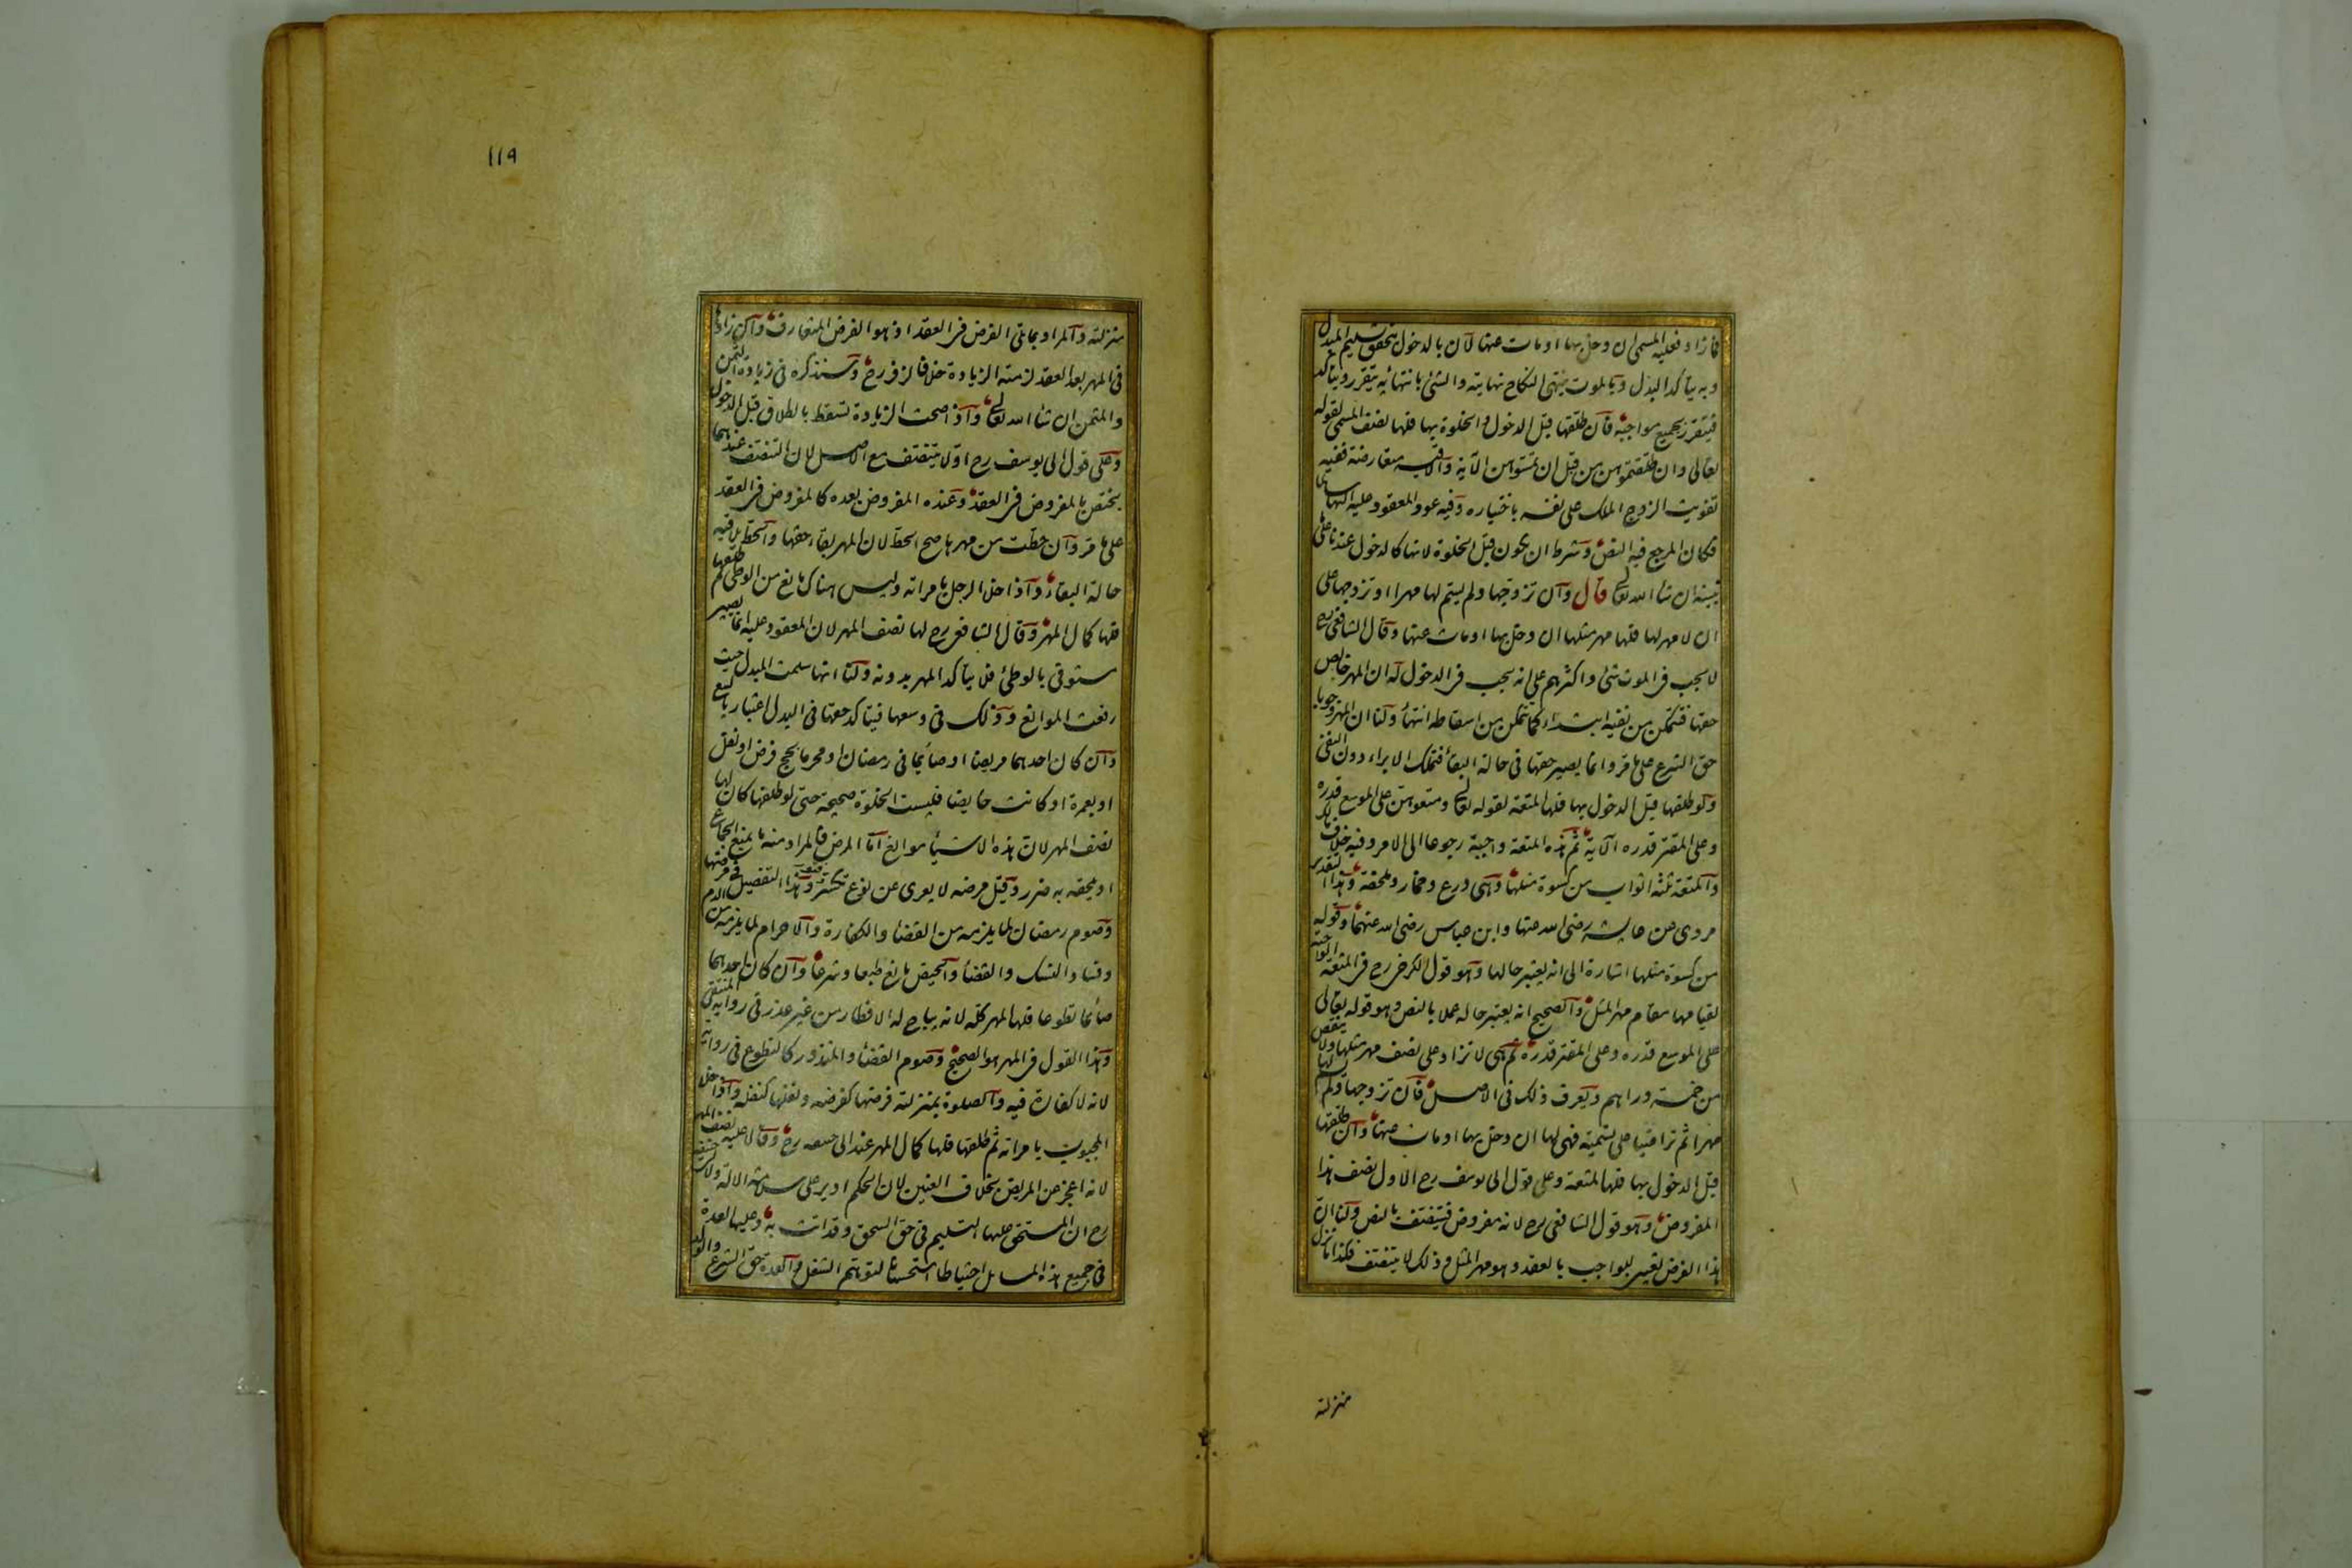 فما زاد فعليه المسمى ان دخل بها او مات عنها لان بالدخول يتحقق تسليم المبدل
وبه يتأكد البدل وبالموت ينتهى النكاح نهايته والشئ بانتهائه يتقرر ويتأكد
فيتقرر بجميع مواجبه فان طلقها قبل الدخول والخلوة بها فلها نصف المسمى لقوله
تعالى وان طلقتموهن من قبل ان تمسوهن الآية والاقيسة متعارضة ففيه
تفويت الزوج الملك على نفسه باختياره وفيه عود المعقود عليه اليها سالما
فكان المرجع فيه النص وشرط ان يكون قبل الخلوة لانها كالدخول عندنا على ما
نبينه ان شاء الله تعالى قال وان تزوجها ولم يسم لها مهرا او تزوجها على
ان لا مهر لها فلها مهر مثلها ان دخل بها او مات عنها وقال الشافعى رح
لا يجب فى الموت شئ واكثرهم على انه يجب فى الدخول له ان المهر خالص
حقها فتتمكن من نفيه ابتداء كما تتمكن من اسقاطه انتهاء ولنا ان المهر وجوبا
حق الشرع على ما مر وانما يصير حقها فى حالة البقاء فتملك الابراء دون النفى
ولو طلقها قبل الدخول بها فلها المتعة لقوله تعالى ومتعوهن على الموسع قدره
وعلى المقتر قدره الآية ثم هذه المتعة واجبة رجوعا الى الامر وفيه خلاف مالك
والمتعة ثلثة اثواب من كسوة مثلها وهى درع وخمار وملحفة وهذا التقدير
مروى عن عايشة رضى الله عنها وابن عباس رضى الله عنهما وقوله
من كسوة مثلها اشارة الى انه يعتبر حالها وهو قول الكرخى رح فى المتعة الواجبة
لقيامها مقام مهر المثل والصحيح انه يعتبر حاله عملا بالنص وهو قوله تعالى
على الموسع قدره وعلى المقتر قدره ثم هى لا تزاد على نصف مهر مثلها ولا ينقص
من خمسة دراهم ويعرف ذلك فى الاصل فان تزوجها ولم يسم لها
مهرا ثم تراضيا على تسمية فهى لها ان دخل بها او مات عنها وان طلقها
قبل الدخول بها فلها المتعة وعلى قول ابى يوسف رح الاول نصف هذا
المفروض وهو قول الشافعى رح لانه مفروض فيتنصف بالنص ولنا ان
هذا الفرض تعيين للواجب بالعقد وهو مهر المثل وذلك لا يتنصف فكذا ما نزل
منزلته
١١٩
منزلته والمراد بما تلى الفرض فى العقد اذ هو الفرض المتعارف وان زاد لها
فى المهر بعد العقد لزمته الزيادة خلافا لزفر رح وسنذكره فى زيادة الثمن
والمثمن ان شاء الله تعالى واذا صحت الزيادة تسقط بالطلاق قبل الدخول
وعلى قول ابى يوسف رح اولا يتنصف مع الاصل لان التنصف عندهما
يختص بالمفروض فى العقد وعنده المفروض بعده كالمفروض فى العقد
على ما مر وان حطت من مهرها صح الحط لان المهر بقاء حقها والحط يلاقيه
حالة البقاء واذا خلا الرجل بامرأته وليس هناك مانع من الوطى ثم طلقها
فلها كمال المهر وقال الشافعى رح لها نصف المهر لان المعقود عليه انما يصير
مستوفى بالوطئ فلا يتأكد المهر بدونه ولنا انها سلمت المبدل حيث
رفعت الموانع وذلك فى وسعها فيتأكد حقها فى البدل اعتبارا بالبيع
وان كان احدهما مريضا او صائما فى رمضان او محرما بحج فرض او نفل
او بعمرة او كانت حايضا فليست الخلوة صحيحة حتى لو طلقها كان لها
نصف المهر لان هذه الاشياء موانع اما المرض فالمراد منه ما يمنع الجماع
او يلحقه به ضرر وقيل مرضه لا يعرى عن نوع تكسر وهذا التفصيل فى مرضها
وصوم رمضان لما يلزمه من القضاء والكفارة والاحرام لما يلزمه من الدم
وفساد النسك والقضاء والحيض مانع طبعا وشرعا وان كان احدهما
صائما تطوعا فلها المهر كله لانه يباح له الافطار من غير عذر فى رواية المنتقى
وهذا القول فى المهر هو الصحيح وصوم القضاء والمنذور كالتطوع فى رواية
لانه لا كفارة فيه والصلوة بمنزلته فرضها كفرضه ونفلها كنفله واذا خلا
المجبوب بامرأته ثم طلقها فلها كمال المهر عند ابى حنيفة رح وقالا عليه نصف المهر
لانه اعجز عن المريض بخلاف العنين لان الحكم ادير على سلامة الالة ولابى حنيفة
رح ان المستحق عليها التسليم فى حق السحق وقد اتت به وعليها العدة
فى جميع هذه المسايل احتياطا استحسانا لتوهم الشغل والعدة حق الشرع والولد